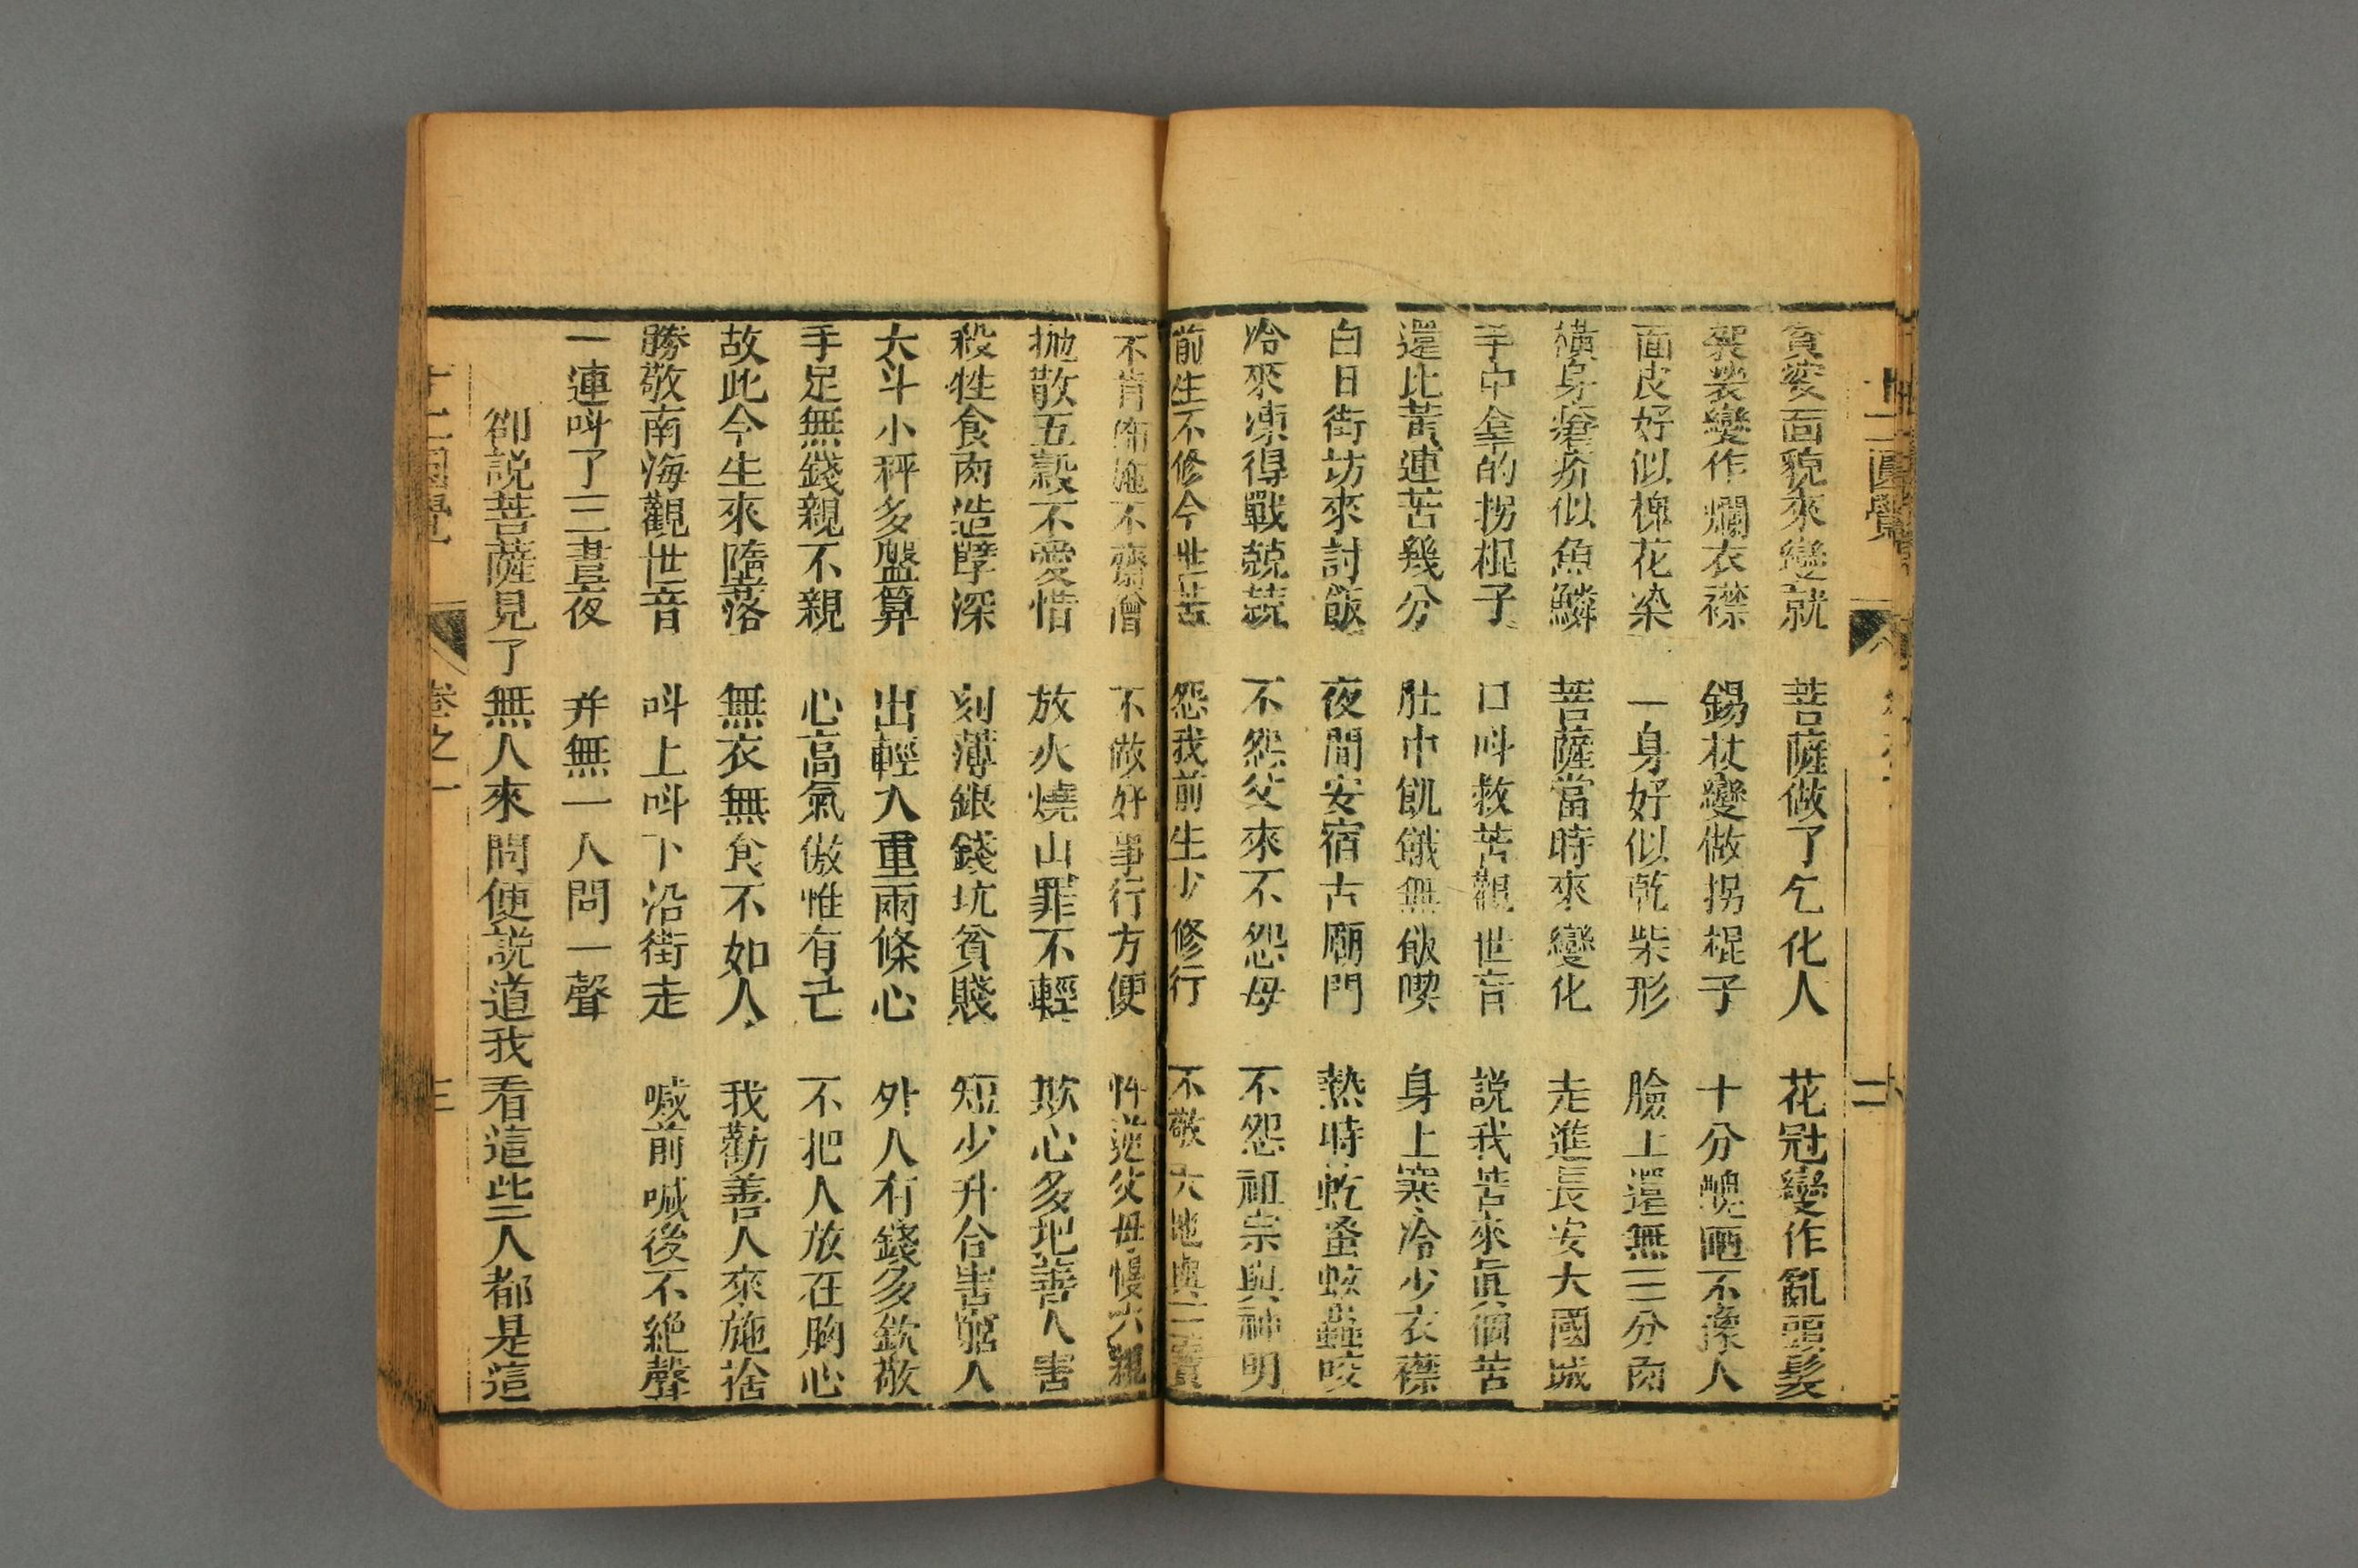 十二圓覺
二
貧婆面貌來變就 菩薩做了乞化人 花冠變作亂頭髮
袈裟變作爛衣襟 錫杖變做拐棍子 十分醜陋不像人
面皮好似槐花染 一身好似乾柴形 臉上還無三分肉
橫身瘡疥似魚鱗 菩薩當時來變化 走進長安大國城
手中拿的拐棍子 口呌救苦觀世音 說我苦來眞個苦
還比黃連苦幾分 肚中飢餓無飯喫 身上寒冷少衣襟
白日街坊來討飯 夜間安宿古廟門 熱時虼蚤蚊蟲咬
冷來凍得戰兢兢 不怨父來不怨母 不怨祖宗與神明
前生不修今世苦 怨我前生少修行 不敬天地與三寶
不肯佈施不齋僧 不做好事行方便 忤逆父母慢六親
拋散五穀不愛惜 放火燒山罪不輕 欺心多地善人害
殺牲食肉造孽深 刻薄銀錢坑貧賤 短少升合害窮人
大斗小秤多盤算 出輕入重兩條心 外人有錢多欽敬
手足無錢親不親 心高氣傲惟有己 不把人放在胸心
故此今生來墮落 無衣無食不如人 我勸善人來施捨
勝敬南海觀世音 呌上呌下沿街走 喊前喊後不絶聲
一連呌了三晝夜 幷無一人問一聲
卻說菩薩見了無人來問便說道我看這些人都是這
十二圓覺 卷之一 三